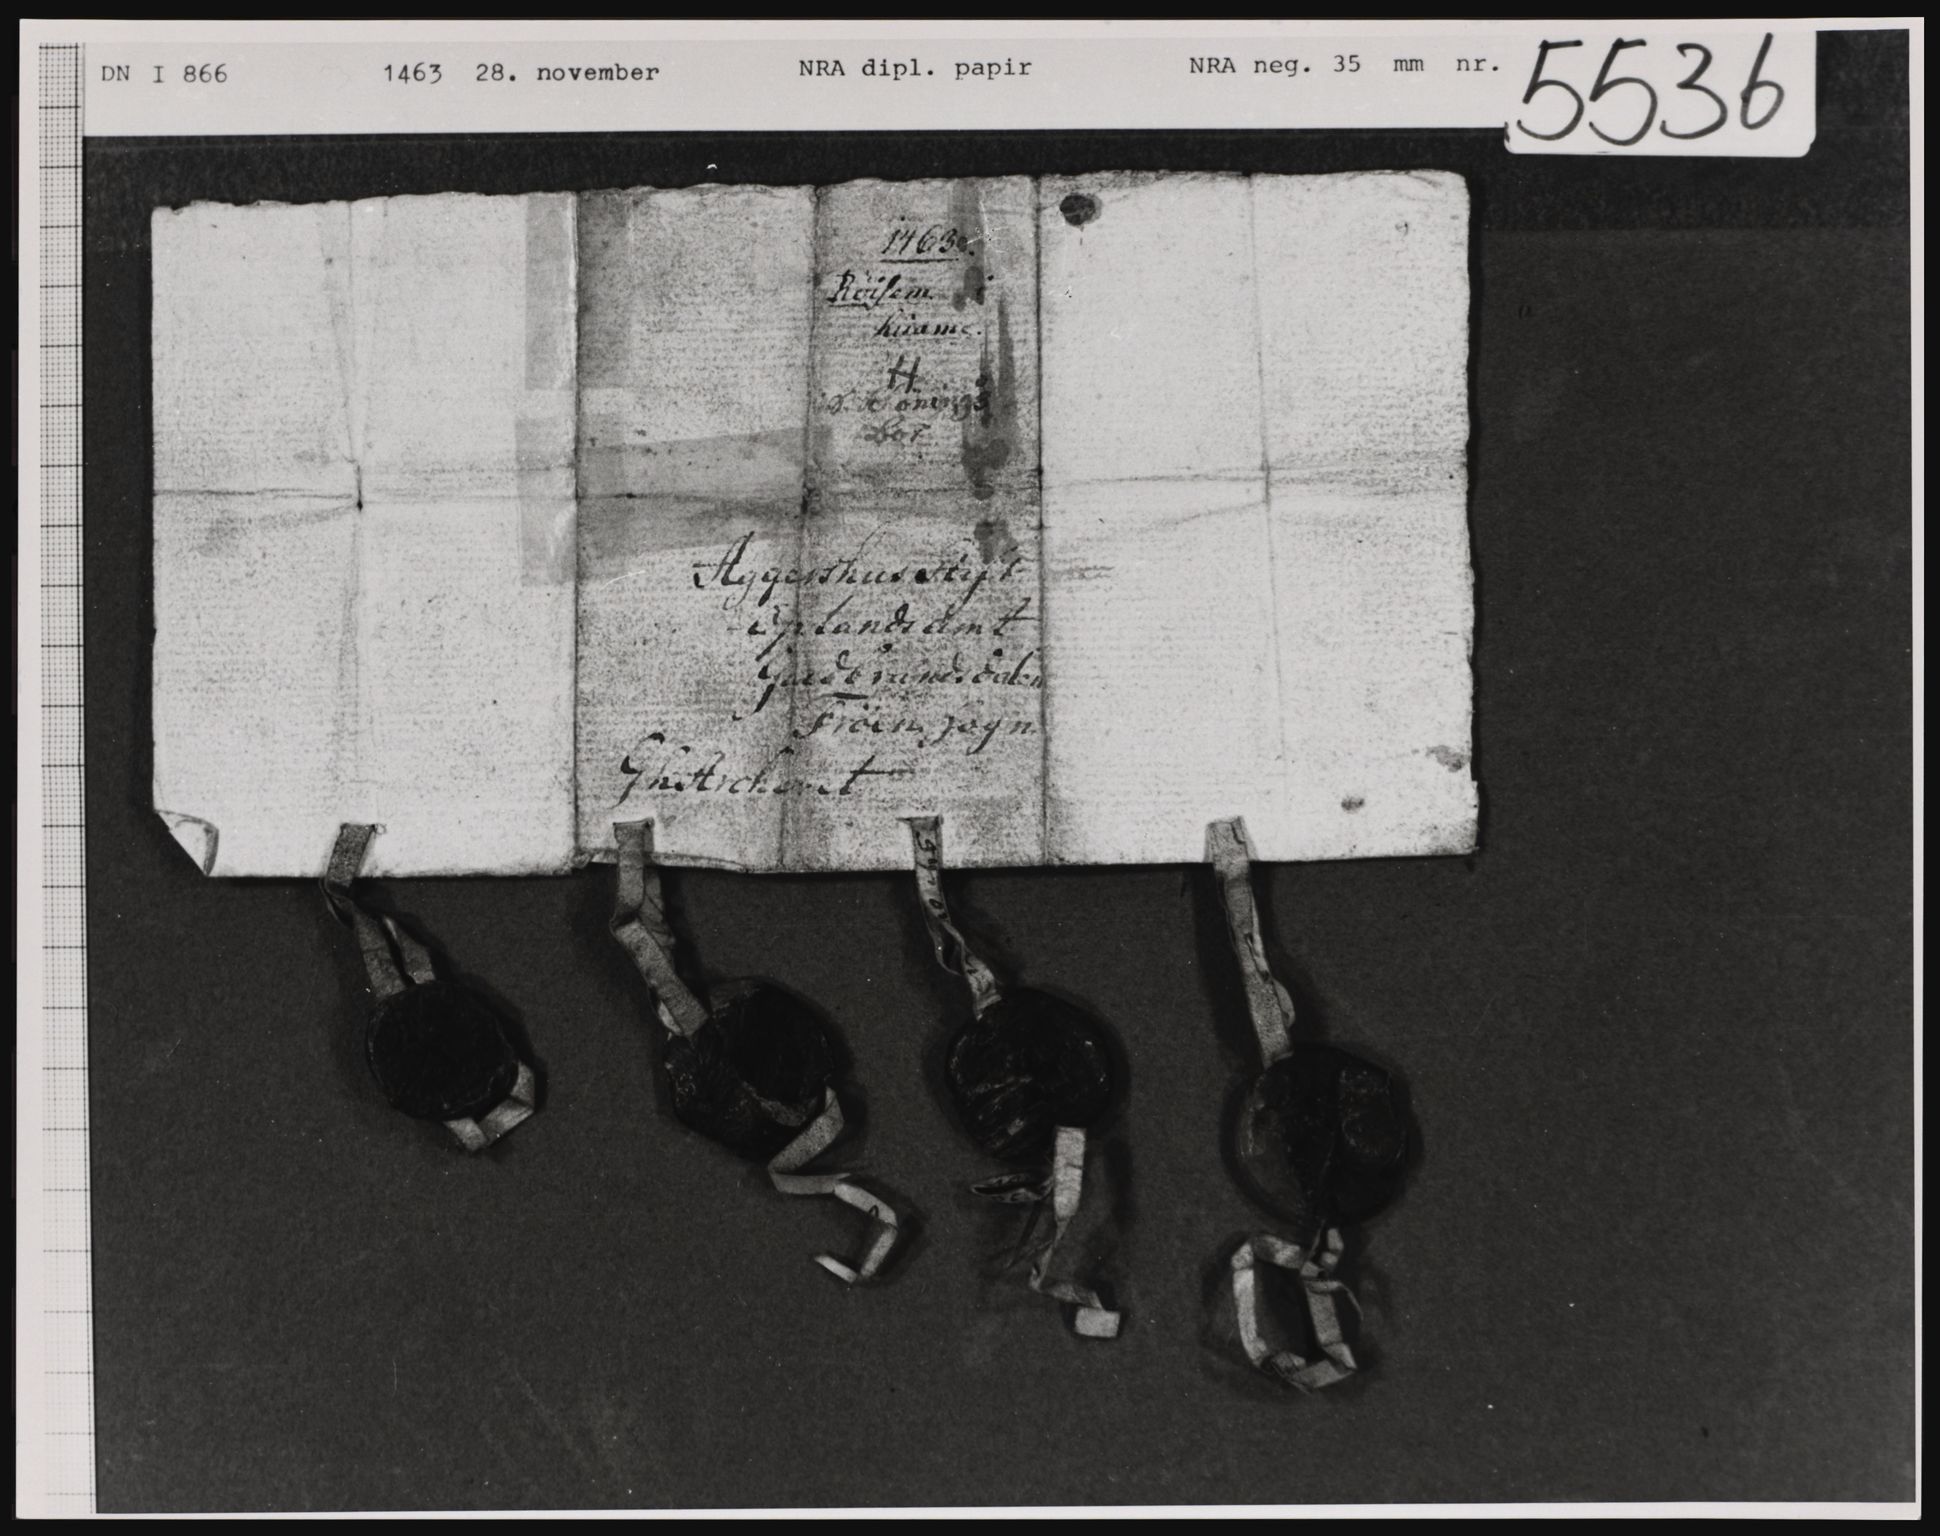 DN I 866 1463 28. november NRA dipl. papir NRA neg. 35 mm nr. 5536
1463.
Röisem i
kuame.
H
Konings
Bog
Aggershus stift
Oplands amt
Guldbrandsdalen
Fröen sogn
Gh Archivet